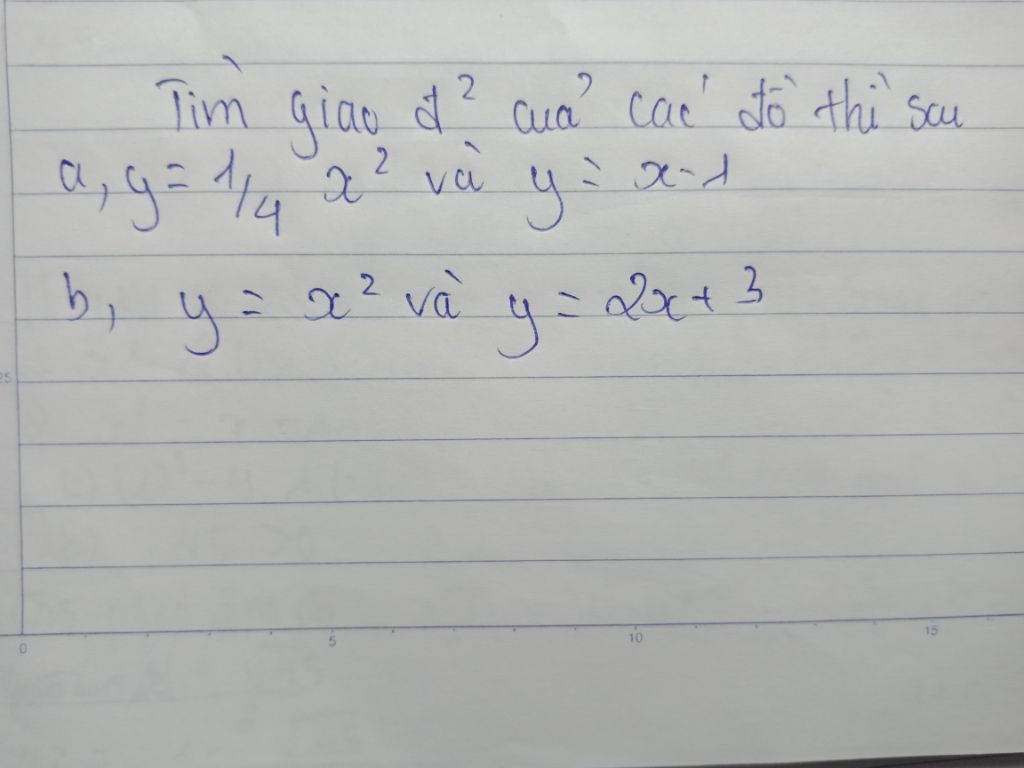 Tìm giao đ² của các đồ thì sau
a, y = 1/4 x² và y = x-1
b, y = x² và y = 2x + 3
25
0 5 10 15